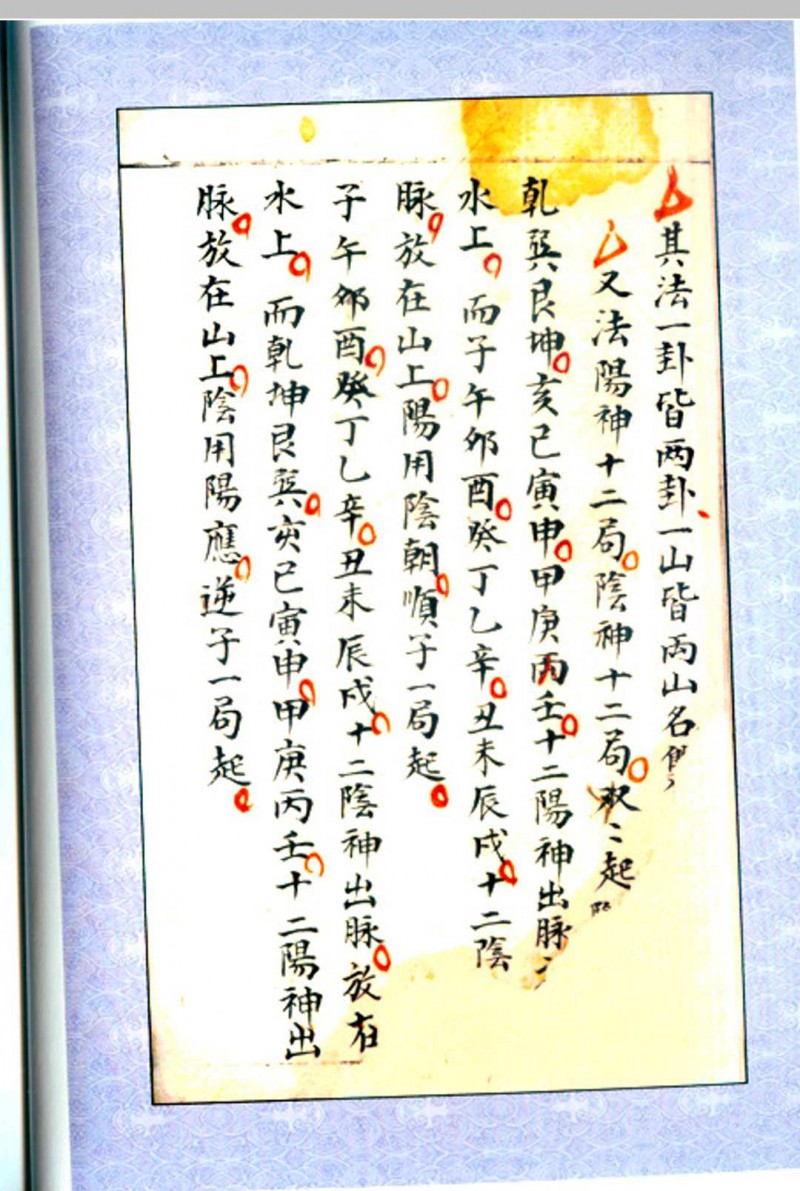 其法一卦皆两卦一山皆两山名
又法陽神十二局陰神十二局取〻起
乾巽艮坤亥巳寅申甲庚丙壬十二陽神出脉〻
水上而子午卯酉癸丁乙辛丑未辰戌十二陰
脉放在山上陽用陰朝順子一局起
子午卯酉癸丁乙辛丑未辰戌十二陰神出脉放在
水上而乾坤艮巽亥巳寅申甲庚丙壬十二陽神出
脉放在山上陰用陽應逆子一局起